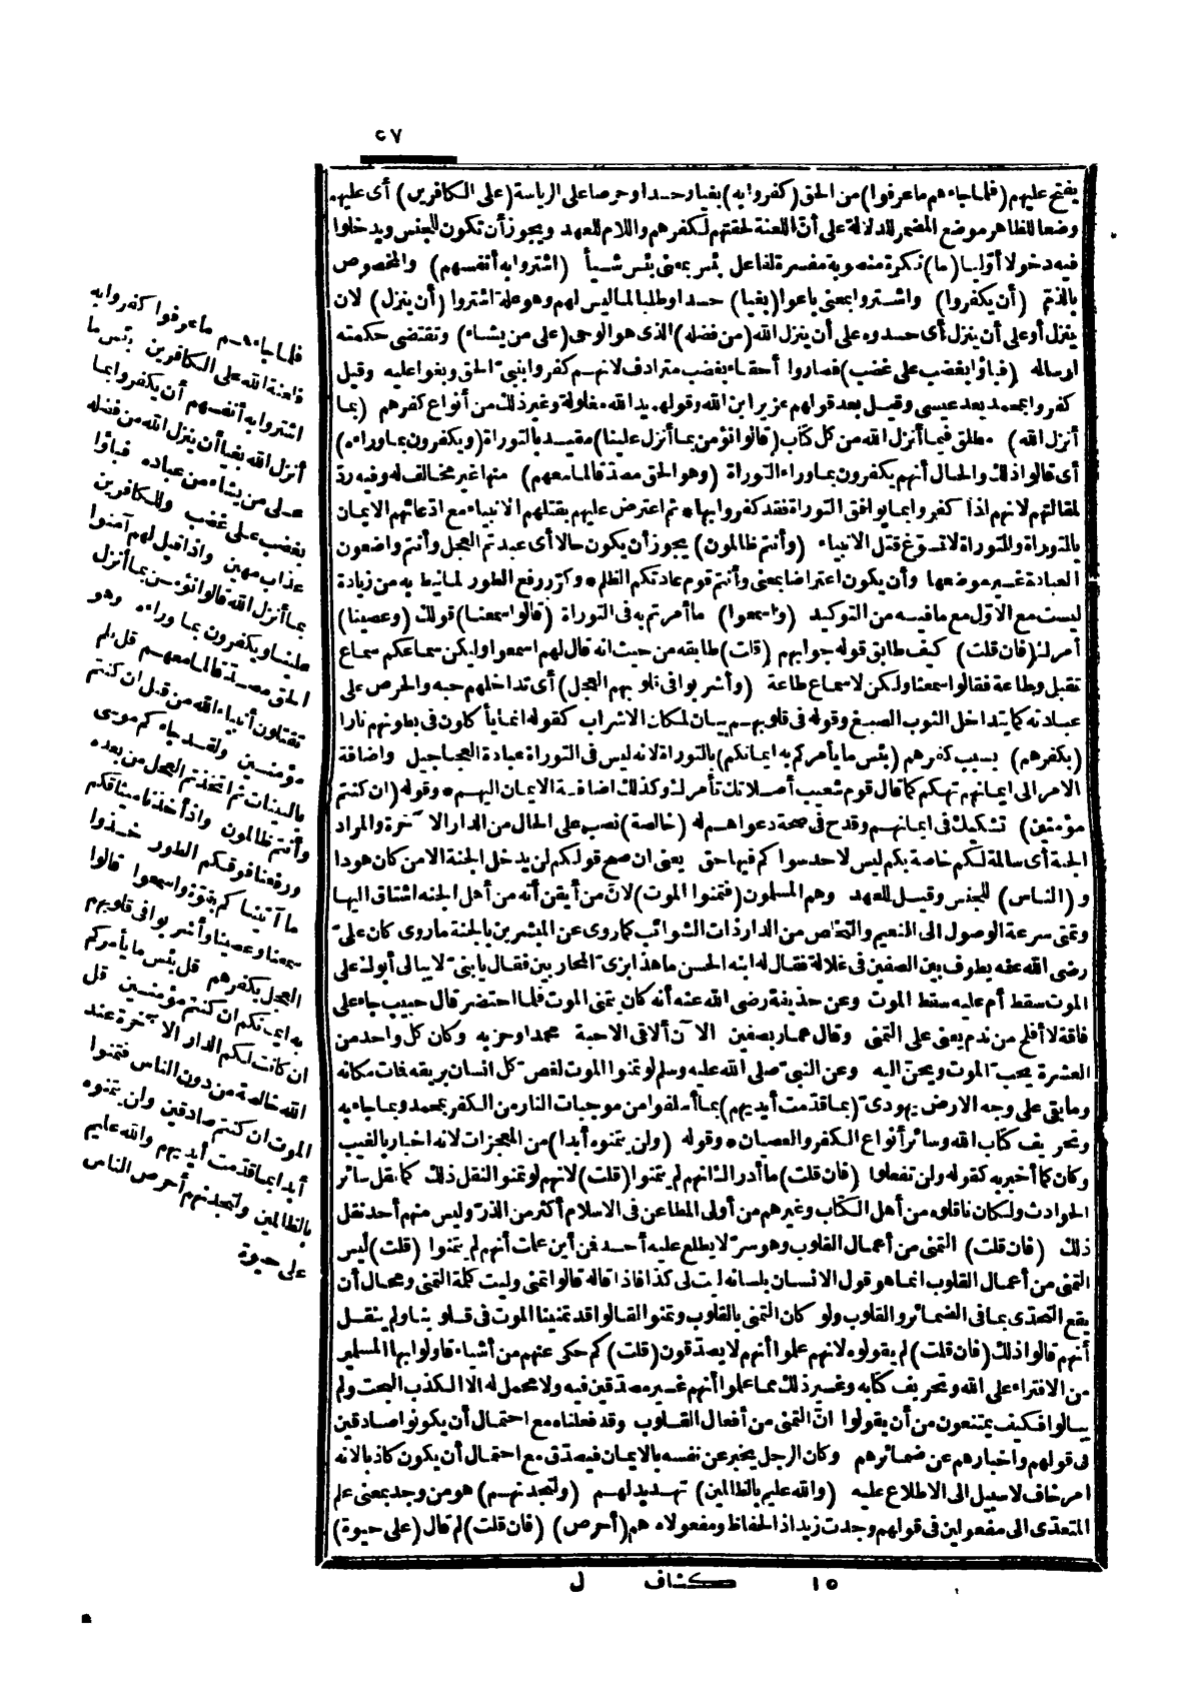 ٦٧
يفتح عليهم (فلما جاءهم ما عرفوا) من الحق (كفروا به) بغيا وحسدا وحرصا على الرياسة (على الكافرين) أى عليهم
وضعا للظاهر موضع المضمر للدلالة على أن اللعنة لحقتهم لكفرهم واللام للعهد ويجوز أن تكون للجنس ويدخلوا
فيه دخولا أوليا (ما) نكرة منصوبة مفسرة لفاعل بئس بمعنى بئس شيأ (اشتروا به أنفسهم) والمخصوص
بالذم (أن يكفروا) واشتروا بمعنى باعوا (بغيا) حسدا وطلبا لما ليس لهم وهو علة اشتروا (أن ينزل) لان
ينزل أو على أن ينزل أى حسدوه على أن ينزل الله (من فضله) الذى هو الوحى (على من يشاء) وتقتضى حكمته
ارساله (فباؤا بغضب على غضب) فصاروا أحقاء بغضب مترادف لانهم كفروا بنبى الحق وبغوا عليه وقيل
كفروا بمحمد بعد عيسى وقيل بعد قولهم عزير ابن الله وقولهم يد الله مغلولة وغير ذلك من أنواع كفرهم (بما
أنزل الله) مطلق فيما أنزل الله من كل كتاب (قالوا نؤمن بما أنزل علينا) مقيد بالتوراة (ويكفرون بما وراءه)
أى قالوا ذلك والحال أنهم يكفرون بما وراء التوراة (وهو الحق مصدقا لما معهم) منها غير مخالف له وفيه رد
لمقالتهم لانهم اذا كفروا بما يوافق التوراة فقد كفروا بها * ثم اعترض عليهم بقتلهم الانبياء مع ادعائهم الايمان
بالتوراة والتوراة لا تسوّغ قتل الانبياء (وأنتم ظالمون) يجوز أن يكون حالا أى عبدتم العجل وأنتم واضعون
العبادة غير موضعها وأن يكون اعتراضا بمعنى وأنتم قوم عادتكم الظلم * وكرر رفع الطور لما نيط به من زيادة
ليست مع الاول مع ما فيه من التوكيد (واسمعوا) ما أمرتم به فى التوراة (قالوا سمعنا) قولك (وعصينا)
أمرك (فان قلت) كيف طابق قوله جوابهم (قلت) طابقه من حيث انه قال لهم اسمعوا وليكن سماعكم سماع
تقبل وطاعة فقالوا سمعنا ولكن لا سماع طاعة (وأشربوا فى قلوبهم العجل) أى تداخلهم حبه والحرص على
عبادته كما يتداخل الثوب الصبغ وقوله فى قلوبهم بيان لمكان الاشراب كقوله انما يأكلون فى بطونهم نارا
(بكفرهم) بسبب كفرهم (بئس ما يأمركم به ايمانكم) بالتوراة لانه ليس فى التوراة عبادة العجاجيل واضافة
الامر الى ايمانهم تهكم كما قال قوم شعيب أصلاتك تأمرك وكذلك اضافة الايمان اليهم * وقوله (ان كنتم
مؤمنين) تشكيك فى ايمانهم وقدح فى صحة دعواهم له (خالصة) نصب على الحال من الدار الآخرة والمراد
الجنة أى سالمة لكم خاصة بكم ليس لاحد سواكم فيها حق يعنى ان صح قولكم لن يدخل الجنة الا من كان هودا
و (الناس) للجنس وقيل للعهد وهم المسلمون (فتمنوا الموت) لان من أيقن أنه من أهل الجنة اشتاق اليها
وتمنى سرعة الوصول الى النعيم والتخلص من الدار ذات الشوائب كما روى عن المبشرين بالجنة ما روى كان على
رضى الله عنه يطوف بين الصفين فى غلالة فقال له ابنه الحسن ما هذا بزى المحاربين فقال يا بنى لا يبالى أبوك على
الموت سقط أم عليه سقط الموت وعن حذيفة رضى الله عنه أنه كان يتمنى الموت فلما احتضر قال حبيب جاء على
فاقة لا أفلح من ندم يعنى على التمنى وقال عمار بصفين الآن ألاقى الاحبة محمدا وحزبه وكان كل واحد من
العشرة يحب الموت ويحن اليه وعن النبى صلى الله عليه وسلم لو تمنوا الموت لغص كل انسان بريقه فمات مكانه
وما بقى على وجه الارض يهودى (بما قدمت أيديهم) بما أسلفوا من موجبات النار من الكفر بمحمد وبما جاء به
وتحريف كتاب الله وسائر أنواع الكفر والعصيان * وقوله (ولن يتمنوه أبدا) من المعجزات لانه اخبار بالغيب
وكان كما أخبر به كقوله ولن تفعلوا (فان قلت) ما أدراك انهم لم يتمنوا (قلت) لانهم لو تمنوا لنقل ذلك كما نقل سائر
الحوادث ولكان ناقلوه من أهل الكتاب وغيرهم من أولى المطاعن فى الاسلام أكثر من الذر وليس منهم أحد نقل
ذلك (فان قلت) التمنى من أعمال القلوب وهو سر لا يطلع عليه أحد فمن أين علمت أنهم لم يتمنوا (قلت) ليس
التمنى من أعمال القلوب انما هو قول الانسان بلسانه ليت لى كذا فاذا قاله قالوا تمنى وليت كلمة التمنى ومحال أن
يقع التحدى بما فى الضمائر والقلوب ولو كان التمنى بالقلوب وتمنوا لقالوا قد تمنينا الموت فى قلوبنا ولم ينقل
أنهم قالوا ذلك (فان قلت) لم يقولوه لانهم علموا أنهم لا يصدقون (قلت) كم حكى عنهم من أشياء قاولوا بها المسلمين
من الافتراء على الله وتحريف كتابه وغير ذلك مما علموا أنهم غير مصدقين فيه ولا محمل له الا الكذب البحت ولم
يبالوا فكيف يمتنعون من أن يقولوا ان التمنى من أفعال القلوب وقد فعلناه مع احتمال أن يكونوا صادقين
فى قولهم واخبارهم عن ضمائرهم وكان الرجل يخبر عن نفسه بالايمان فيصدق مع احتمال أن يكون كاذبا لانه
أمر خاف لا سبيل الى الاطلاع عليه (والله عليم بالظالمين) تهديد لهم (ولتجدنهم) هو من وجد بمعنى علم
المتعدى الى مفعولين فى قولهم وجدت زيدا ذا الحفاظ ومفعولاه هم (أحرص) (فان قلت) لم قال (على حيوة)
فلما جاءهم ما عرفوا كفروا به
فلعنة الله على الكافرين بئس ما
اشتروا به أنفسهم أن يكفروا بما
أنزل الله بغيا أن ينزل الله من فضله
على من يشاء من عباده فباؤا
بغضب على غضب وللكافرين
عذاب مهين واذا قيل لهم آمنوا
بما أنزل الله قالوا نؤمن بما أنزل
علينا ويكفرون بما وراءه وهو
الحق مصدقا لما معهم قل فلم
تقتلون أنبياء الله من قبل ان كنتم
مؤمنين ولقد جاءكم موسى
بالبينات ثم اتخذتم العجل من بعده
وأنتم ظالمون واذ أخذنا ميثاقكم
ورفعنا فوقكم الطور خذوا
ما آتيناكم بقوة واسمعوا قالوا
سمعنا وعصينا وأشربوا فى قلوبهم
العجل بكفرهم قل بئس ما يأمركم
به ايمانكم ان كنتم مؤمنين قل
ان كانت لكم الدار الآخرة عند
الله خالصة من دون الناس فتمنوا
الموت ان كنتم صادقين ولن يتمنوه
أبدا بما قدمت أيديهم والله عليم
بالظالمين ولتجدنهم أحرص الناس
على حيوة
١٥ كشاف ل